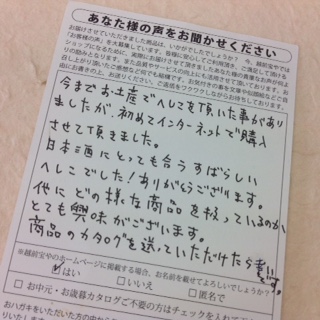 あなた様の声をお聞かせください
お届けさせていただきました商品は、いかがでしたでしょうか？ 今、越前宝やでは
「お客様の声」を大募集しています。皆様に安心してご利用頂き、ご満足して頂ける
ショップになるために、実際にお届けさせて頂きましたあなた様の貴重なお声が何より
今までお土産でへしこを頂いた事があり
ましたが、初めてインターネットで購入
させて頂きました。
日本酒にとっても合うすばらしい
へしこでした！ありがとうございます。
他にどの様な商品を扱っているのか
とても興味がございます。
商品のカタログを送っていただけたら幸いです。
※越前宝やのホームページに掲載する場合、お名前を載せてよろしいでしょうか？
はい □いいえ □匿名で
□ お中元・お歳暮カタログご不要の方はチェックを入れて
おハガキをいただいた方の中から